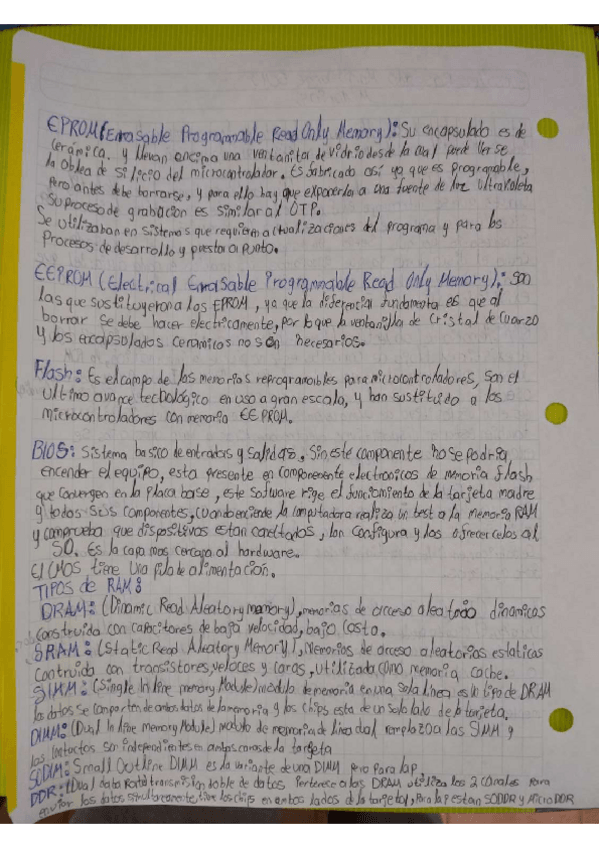 EPROM (Errasable Programnable Read Only Memory): Su encapsulado es de
cerámica. y llevan encima una ventanita de vidrio desde la cual puede verse
la oblea de silicio del microcontrolador. Es fabricado así ya que es programable,
Pero antes debe borrarse, y para ello hay que exponerlo a una fuente de luz Ultravioleta
Su proceso de grabación es similar al OTP.
Se utilizaban en sistemas que requieren actualizaciones del programa y para los
Procesos de desarrollo y prestar a punto.
EEPROM (Electrical Errasable Programnable Read Only Memory): Son
las que sustituyeron a los EPROM, ya que la diferencia fundamental es que al
borrar se debe hacer electricamente, por lo que la ventanilla de Cristal de Cuarzo
y los encapsulados ceramicos no son necesarios.
Flash: Es el campo de las memorias reprogramables para microcontroladores, son el
Ultimo avance tecnológico en uso a gran escala, y han sustituido a los
microcontroladores con memoria EEPROM.
BIOS: Sistema basico de entradas y Salidas, Sin este componente no se podria
encender el equipo, esta presente en componenente electronicos de memoria flash
que convergen en la placa base, este software rige el funciomiento de la tarjeta madre
y todos sus componentes, cuando enciende la computadora realiza un test a la memoria RAM
y comprueba que dispositivos estan conectados, lon configura y los ofrecercelos al
SO. Es la capa mas cercana al hardware.
El CMOS tiene Una pila de alimentacion.
TIPOS de RAM:
DRAM: (Dinamic Read Aleatory memory), memorias de acceso aleatorio dinamicas
construida con capacitores de baja velocidad, bajo costo.
SRAM: (Static Read Aleatory Memory), Memorias de acceso aleatorias estaticas
Contruida con transistores, veloces y caras, utilizada como memoria cache.
SIMM: (Single In line memory Module) modulo de memoria en una sola linea es un tipo de DRAM
los datos se comparten de ambos datos de la memoria y los chips esta de un solo lado de la tarjeta.
DIMM: (Dual In line Memory Module) modulo de memoria de linea dual remplazo a las SIMM y
los contactos son independientes en ambas caras de la tarjeta
SODIM: Small Outline DIMM es la variante de una DIMM pero para lap.
DDR: (Dual data Rate) transmision doble de datos Pertenece a las DRAM utiliza los 2 canales para
enviar los datos simultaneamente, tiene los chips en ambos lados de la tarjeta, Para lap estan SODDR y MicroDDR